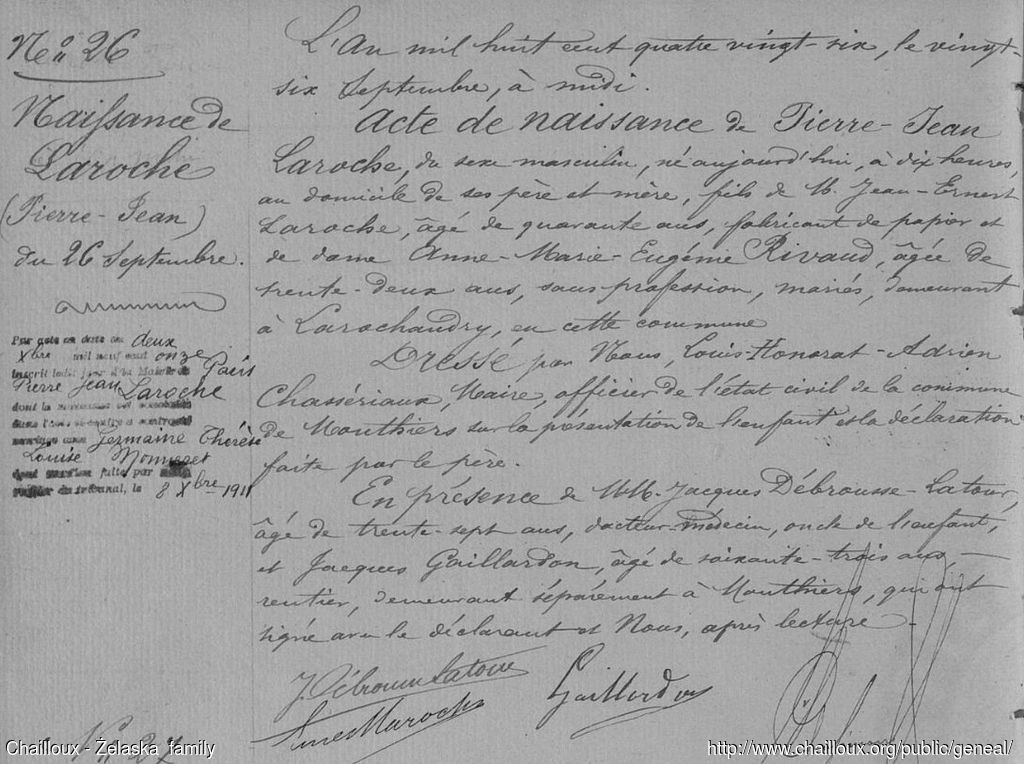 N° 26
Naissance de
Laroche
(Pierre-Jean)
du 26 Septembre.
Par acte en date du deux
Xbre mil neuf cent onze
inscrit ledit jour à la Mairie de Paris
Pierre Jean Laroche
dont la naissance est constatée
dans l'acte ci-contre a contracté
mariage avec Germaine Thérèse
Louise Monneret
dont mention faite par
greffier du tribunal, le 8 Xbre 1911
L'An mil huit cent quatre vingt-six, le vingt-
six Septembre, à midi.
Acte de naissance de Pierre-Jean
Laroche, du sexe masculin, né aujourd'hui, à dix heures,
au domicile de ses père et mère, fils de M. Jean-Ernest
Laroche, âgé de quarante ans, fabricant de papier et
de dame Anne-Marie-Eugénie Rivaud, âgée de
trente-deux ans, sans profession, mariés, demeurant
à Larochandry, en cette commune
Dressé par Nous, Louis-Honorat-Adrien
Chassériaux, Maire, officier de l'état civil de la commune
de Mouthiers sur la présentation de l'enfant et la déclaration
faite par le père.
En présence de MM. Jacques Débrousse-Latour,
âgé de trente-sept ans, docteur-médecin, oncle de l'enfant,
et Jacques Gaillardon, âgé de soixante-trois ans,
rentier, demeurant séparément à Mouthiers, qui ont
signé avec le déclarant et Nous, après lecture.
J Débrousse Latour
Gaillardon
Ernest Laroche
N° 27
Chailloux - Żelaska family
http://www.chailloux.org/public/geneal/